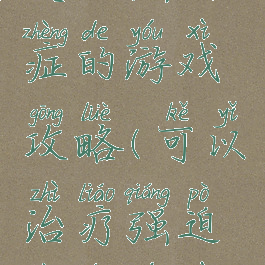 zhèng de yóu xì
症的游戏
gōng lüè kě yǐ
攻略(可以
zhì liáo qiáng pò
治疗强迫